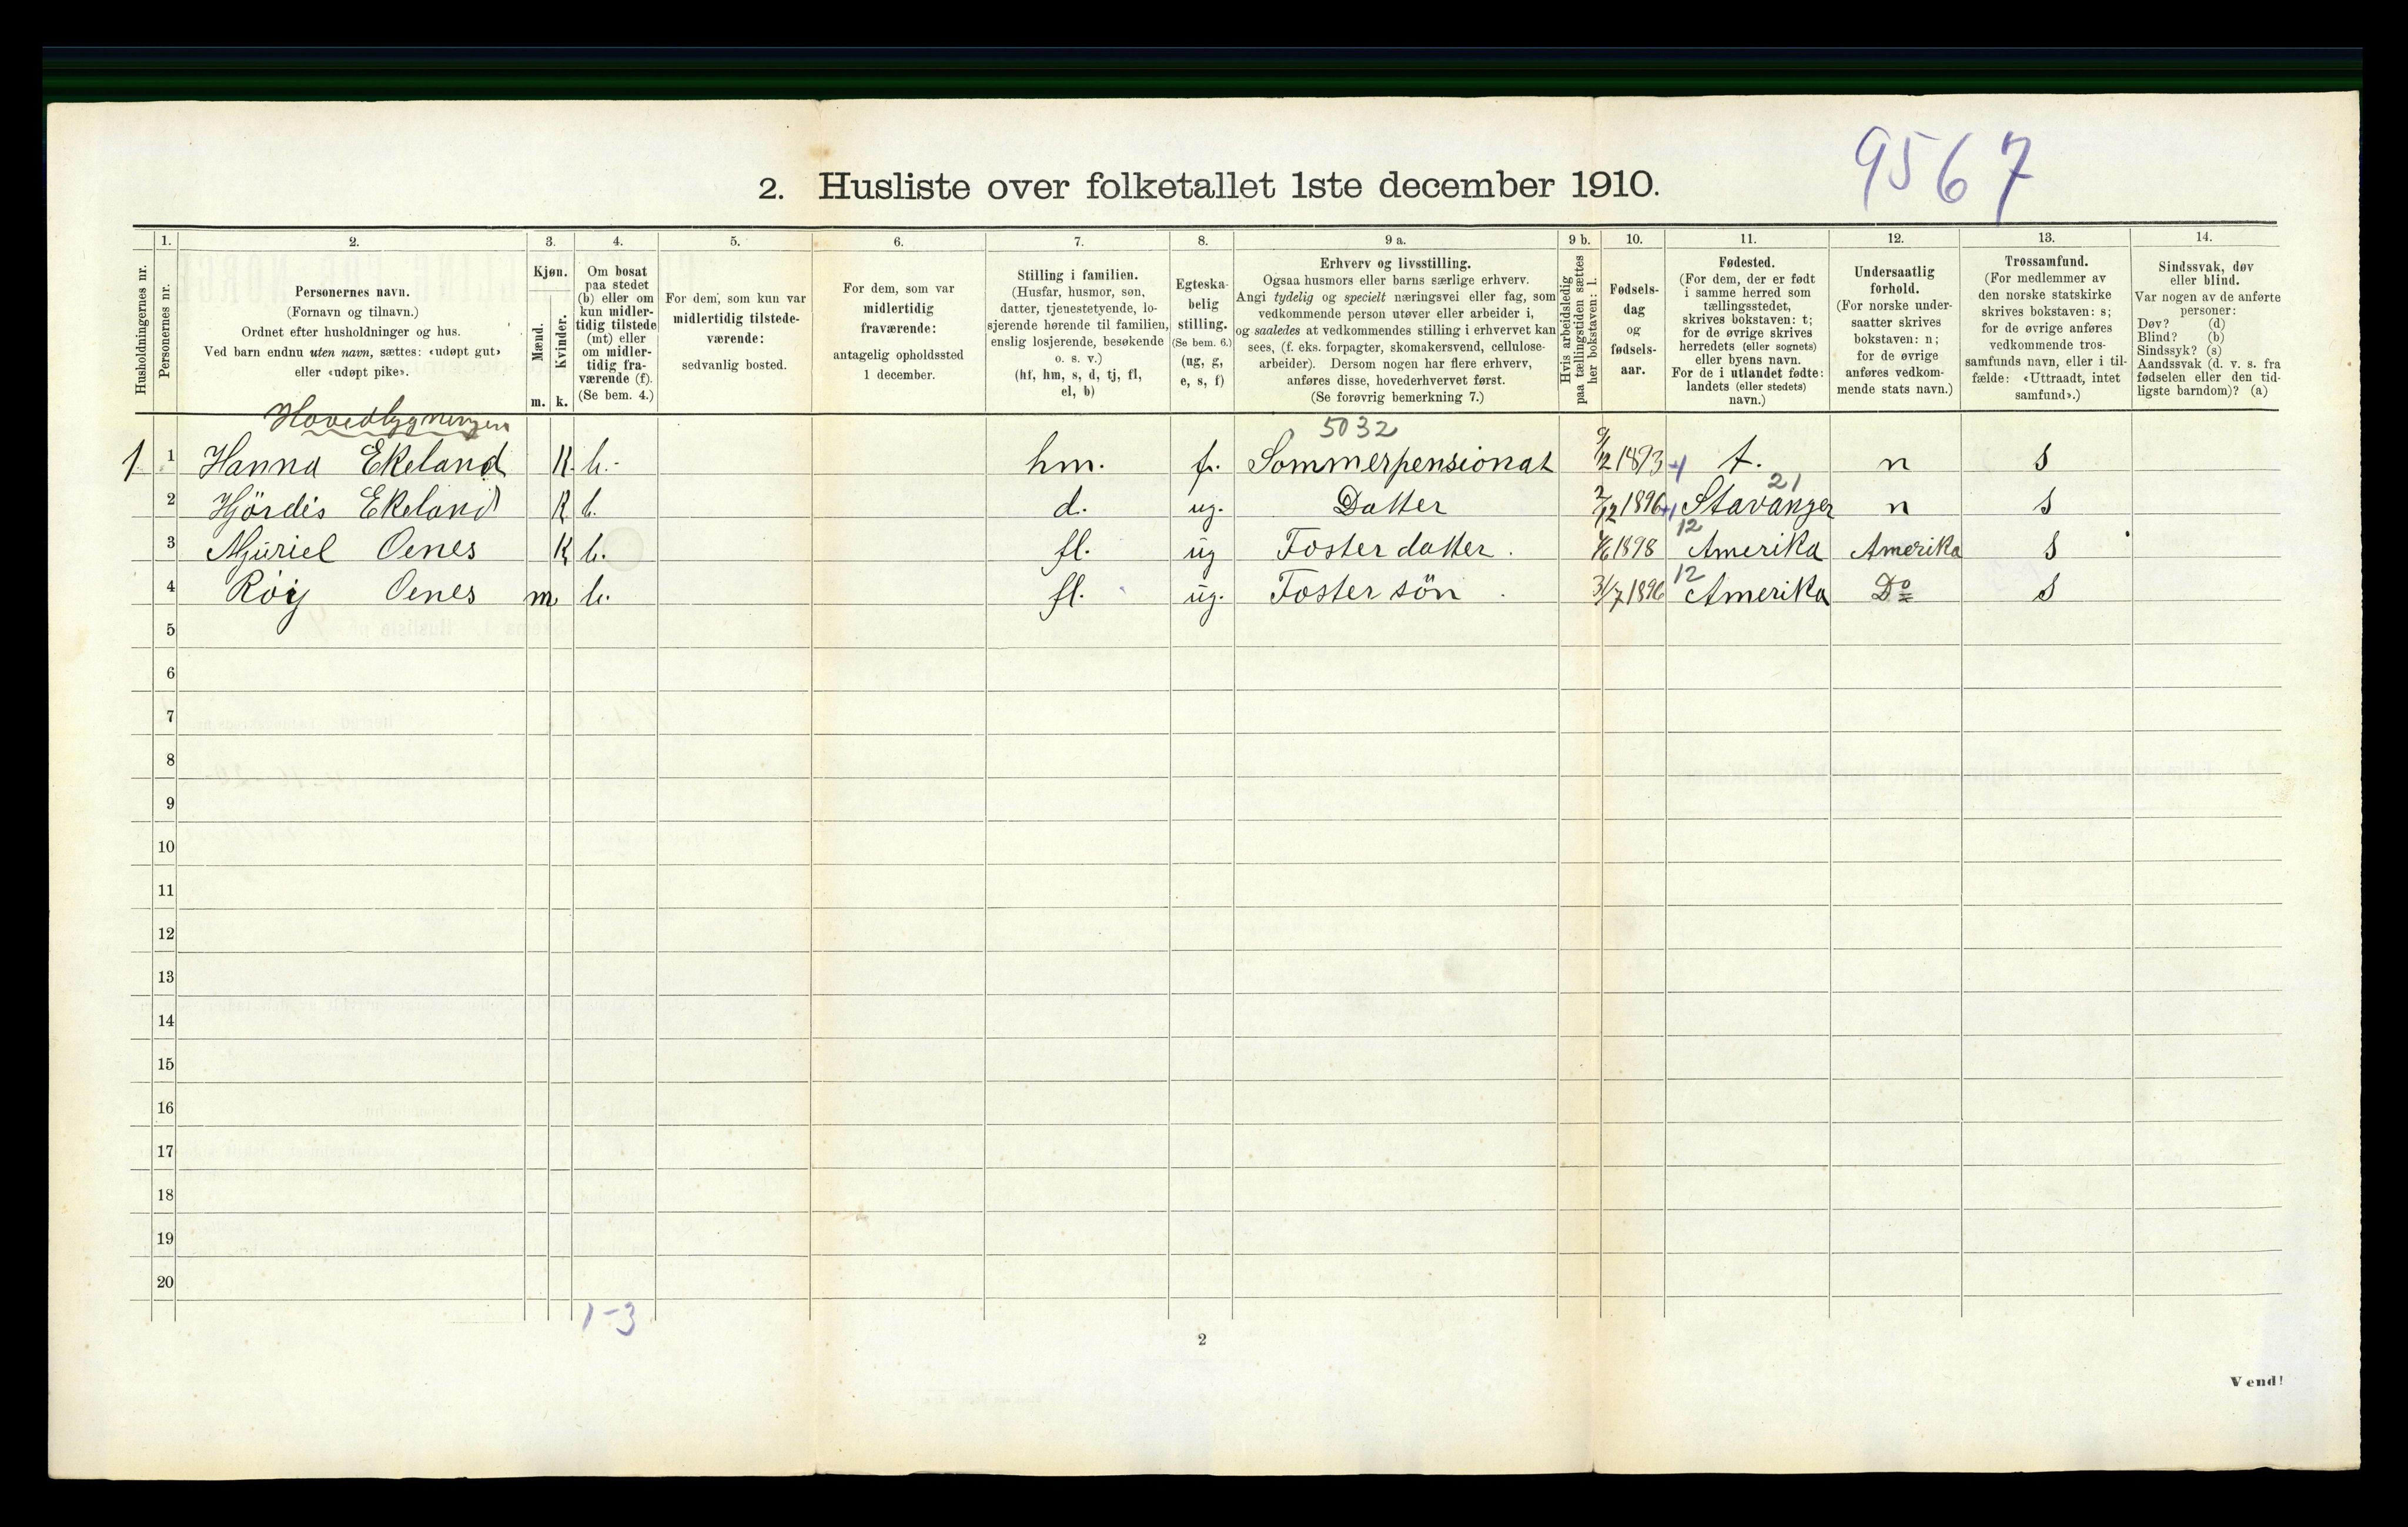 9567
2. Husliste over folketallet 1ste december 1910.
Husholdningernes nr.
1.
Personernes nr.
2.
Personernes navn.
(Fornavn og tilnavn.)
Ordnet efter husholdninger og hus.
Ved barn endnu uten navn, sættes: «udøpt gut»
eller «udøpt pike».
3.
Kjøn.
Mænd.
Kvinder.
m. k.
4.
Om bosat
paa stedet
(b) eller om
kun midler-
tidig tilstede
(mt) eller
om midler-
tidig fra-
værende (f).
(Se bem. 4.)
5.
For dem, som kun var
midlertidig tilstede-
værende:
sedvanlig bosted.
6.
For dem, som var
midlertidig
fraværende:
antagelig opholdssted
1 december.
7.
Stilling i familien.
(Husfar, husmor, søn,
datter, tjenestetyende, lo-
sjerende hørende til familien,
enslig losjerende, besøkende
o. s. v.)
(hf, hm, s, d, tj, fl,
el, b)
8.
Egteska-
belig
stilling.
(Se bem. 6.)
(ug, g,
e, s, f)
9 a.
Erhverv og livsstilling.
Ogsaa husmors eller barns særlige erhverv.
Angi tydelig og specielt næringsvei eller fag, som
vedkommende person utøver eller arbeider i,
og saaledes at vedkommendes stilling i erhvervet kan
sees, (f. eks. forpagter, skomakersvend, cellulose-
arbeider). Dersom nogen har flere erhverv,
anføres disse, hovederhvervet først.
(Se forøvrig bemerkning 7.)
9 b.
Hvis arbeidsledig
paa tællingstiden sættes
her bokstaven: l.
10.
Fødsels-
dag
og
fødsels-
aar.
11.
Fødested.
(For dem, der er født
i samme herred som
tællingsstedet,
skrives bokstaven: t;
for de øvrige skrives
herredets (eller sognets)
eller byens navn.
For de i utlandet fødte:
landets (eller stedets)
navn.)
12.
Undersaatlig
forhold.
(For norske under-
saatter skrives
bokstaven: n;
for de øvrige
anføres vedkom-
mende stats navn.)
13.
Trossamfund.
(For medlemmer av
den norske statskirke
skrives bokstaven: s;
for de øvrige anføres
vedkommende tros-
samfunds navn, eller i til-
fælde: «Uttraadt, intet
samfund».)
14.
Sindssvak, døv
eller blind.
Var nogen av de anførte
personer:
Døv? (d)
Blind? (b)
Sindssyk? (s)
Aandssvak (d. v. s. fra
fødselen eller den tid-
ligste barndom)? (a)
Hovedbygningen
5032
1 1 Hanna Ekeland K. b. hm. f. Sommerpensionat 9/12 1893 +1 t. n s
21
2 Hjördis Ekeland K b. d. ug. Datter 2/12 1896 +1 Stavanger n s
12
3 Mjuriel Oenes K b. fl. ug Foster datter. 1898 Amerika Amerika s
12
4 Röy Oenes m b. fl. ug. Foster sön 31/7 1896 Amerika Do s
5
6
7
8
9
10
11
12
13
14
15
16
17
18
19
20
1-3
2
Vend!